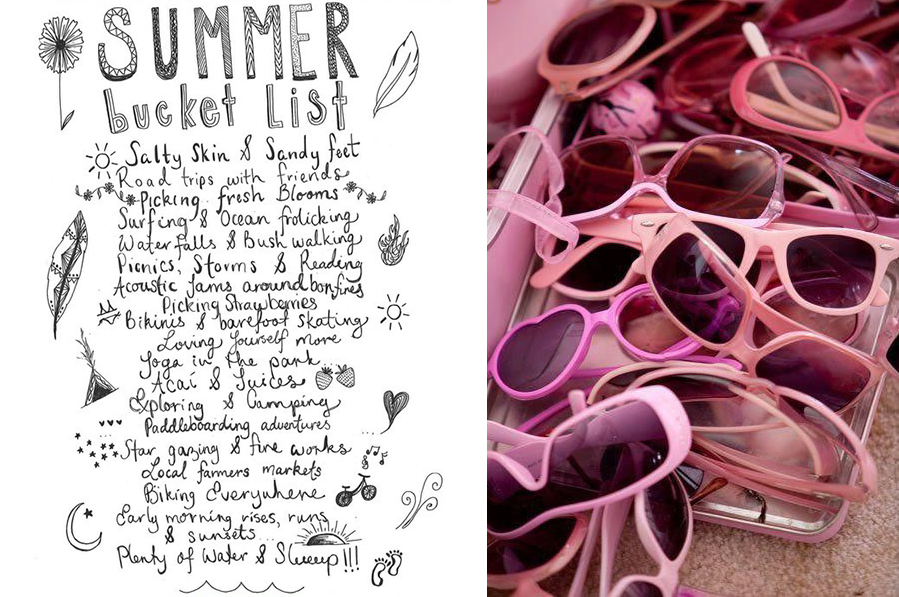 SUMMER
bucket List
Salty Skin & Sandy feet
Road trips with friends
Picking fresh Blooms
Surfing & Ocean frolicking
Waterfalls & Bush walking
Picnics, Storms & Reading
Acoustic Jams around bonfires
Picking Strawberries
Bikinis & barefoot skating
Loving yourself more
Yoga in the park
Acaí & Juices
Exploring & Camping
Paddleboarding adventures
Star gazing & fire works
Local farmers markets
Biking Everywhere
Early morning rises, runs
& sunsets
Plenty of Water & Sleeeep!!!